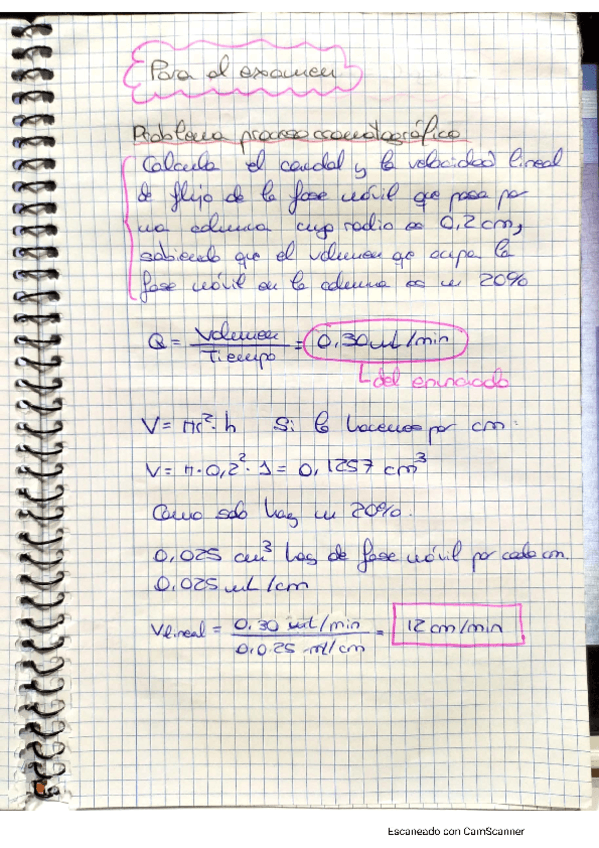 Para el examen
Problema proceso cromatográfico
Calcula el caudal y la velocidad lineal
de flujo de la fase móvil que pasa por
una columna cuyo radio es 0,2 cm,
sabiendo que el volumen que ocupa la
fase móvil en la columna es un 20%
Q = Volumen / Tiempo = 0,30 mL/min
del enunciado
V = πr²·h Si lo hacemos por cm:
V = π·0,2²·1 = 0,1257 cm³
Como solo hay un 20%.
0,025 cm³ hay de fase móvil por cada cm.
0,025 mL/cm
Vlineal = 0,30 mL/min / 0,025 ml/cm = 12 cm/min
Escaneado con CamScanner